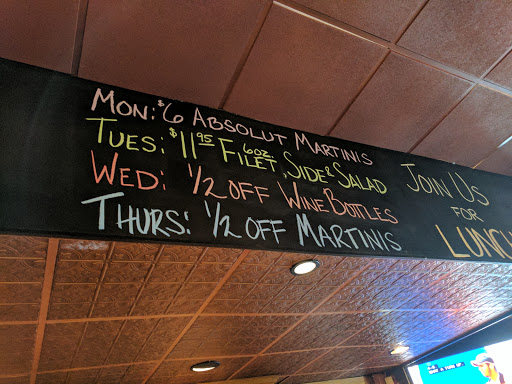 Mon: $6 Absolut Martinis
Tues: $11.95 6oz Filet, Side & Salad
Wed: 1/2 off Wine Bottles
Thurs: 1/2 off Martinis
Join Us
for
Lunch